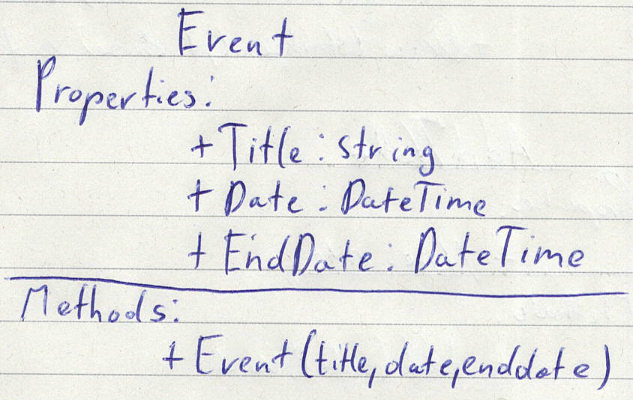 Event
Properties:
+ Title: string
+ Date: DateTime
+ EndDate: DateTime
Methods:
+ Event(title,date,enddate)